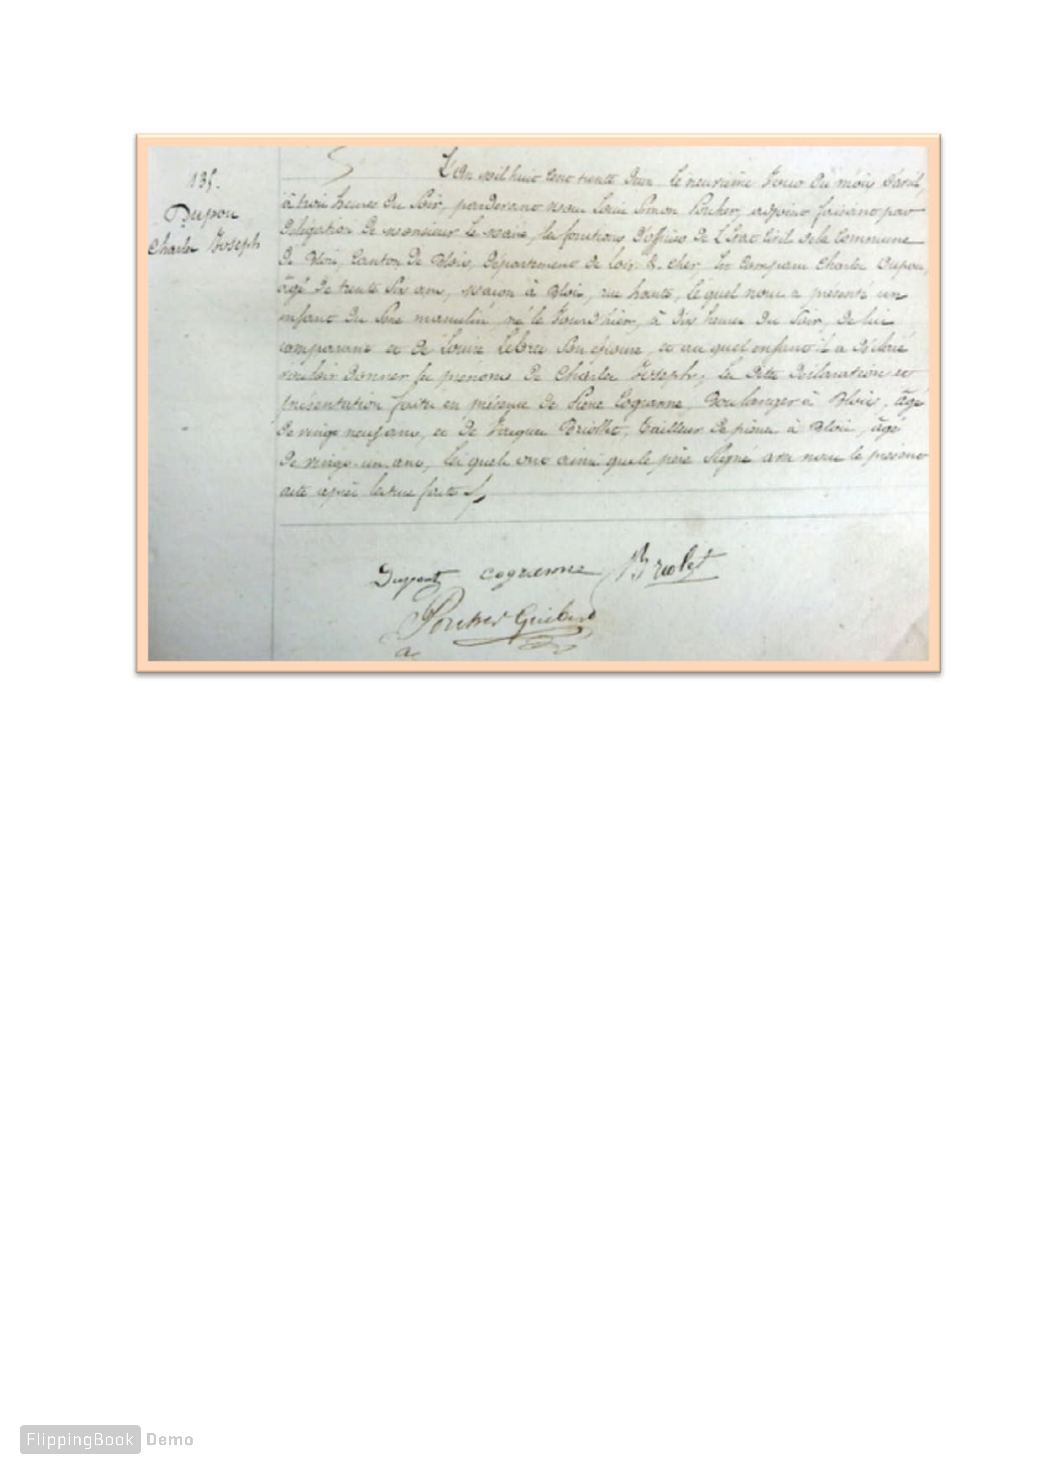 135.
Dupou
Charles Joseph
L'An mil huit cent trente deux le neuvième Jour du mois d'avril,
à trois heures du Soir, pardevant nous Louis Simon adjoint faisant par
délégation de monsieur le maire, les fonctions d'officier de L'Etat Civil de la Commune
de Blois, Canton de Blois, département de Loir & Cher Est comparu Charles Dupou,
âgé de trente Six ans, maçon à Blois, rue haute, lequel nous a présenté un
enfant du Sexe masculin, né le Jour d'hier, à dix heures du Soir, de lui
comparant et de Louise Lebru Son épouse, et au quel enfant il a déclaré
vouloir donner les prénoms de Charles Joseph, Les dites déclaration et
présentation faites en présence de Pierre Cograsne, Boulanger à Blois, âgé
de vingt neuf ans, et de Jacques Briollet, Tailleur de pierres à Blois, âgé
de vingt un ans, lesquels ont ainsi que le père Signé avec nous le présent
acte après lecture faite
Dupont cograsne Briolet
FlippingBook Demo